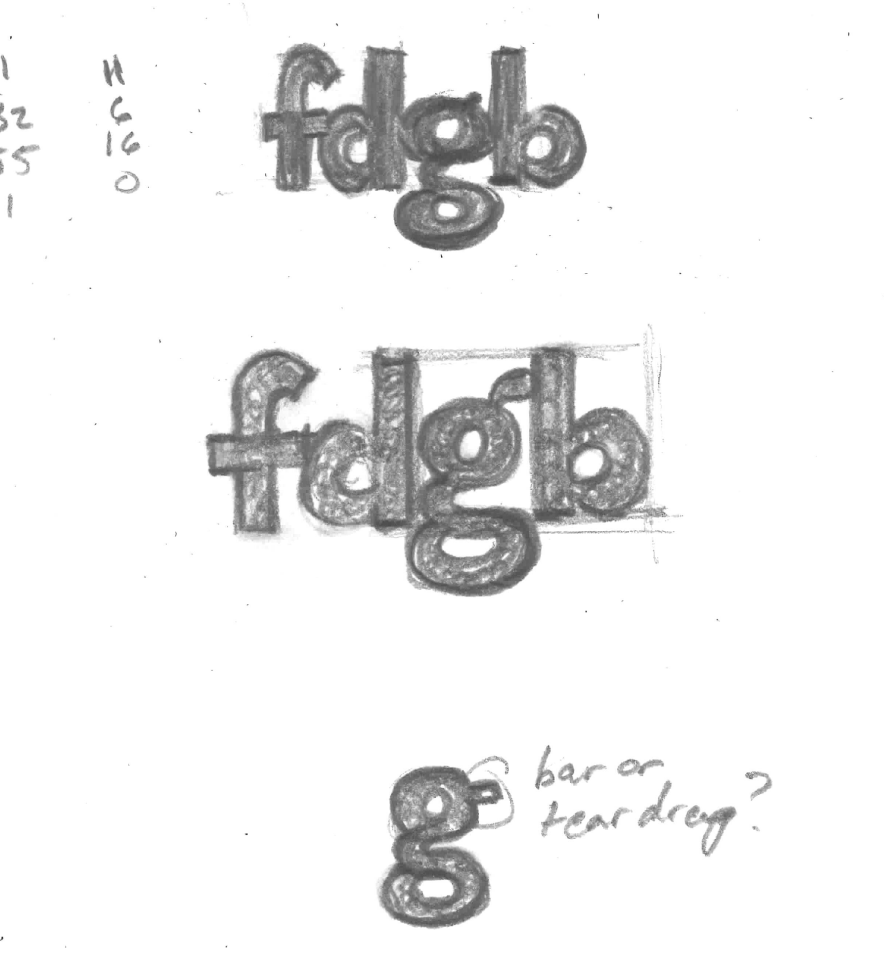 1 H
32 6
55 16
1 0
fdgb
fdgb
g
bar or
teardrop?